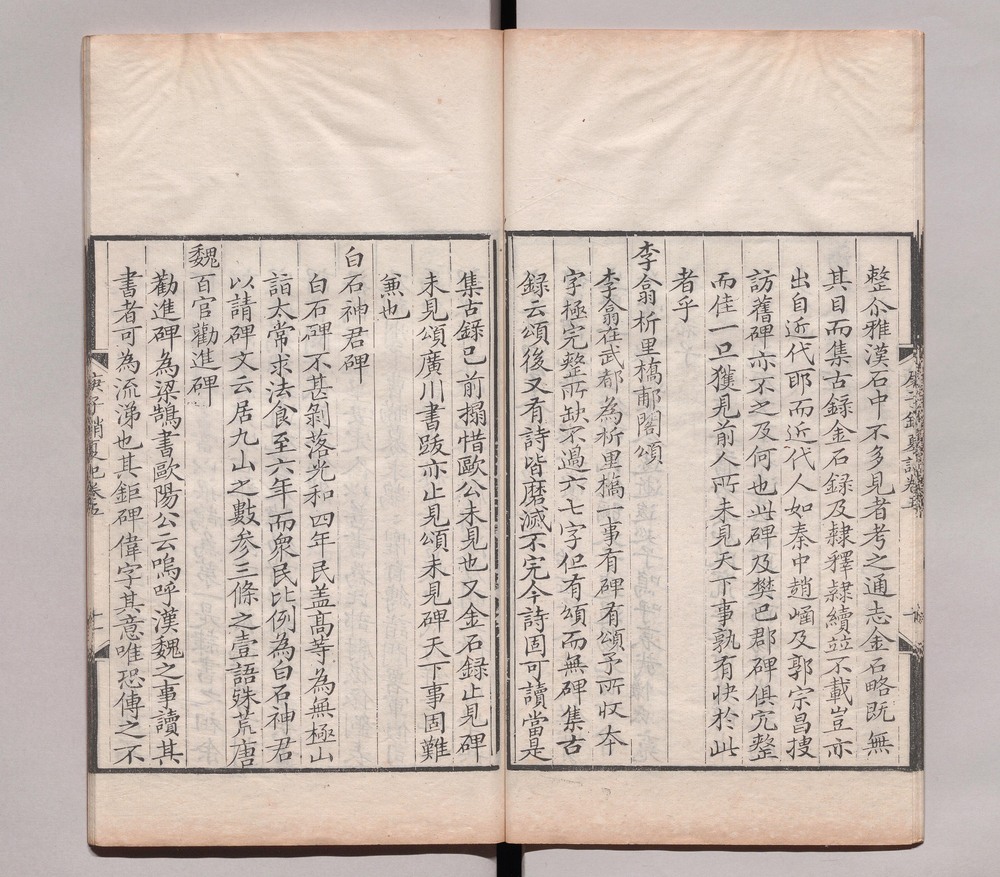 整尒雅漢石中不多見者考之通志金石略既無
其目而集古録金石録及隷釋隷續並不載豈亦
出自近代耶而近代人如秦中趙崡及郭宗昌捜
訪舊碑亦不之及何也此碑及樊巴郡碑俱完整
而佳一旦獲見前人所未見天下事孰有快於此
者乎
李翕析里橋郙閣頌
李翕在武都為析里橋一事有碑有頌予所収本
字極完整所缺不過六七字但有頌而無碑集古
録云頌後又有詩皆磨滅不完今詩固可讀當是
集古録已前搨惜歐公未見也又金石録止見碑
未見頌廣川書跋亦止見頌未見碑天下事固難
兼也
白石神君碑
白石碑不甚剝落光和四年民盖高等為無極山
詣太常求法食至六年而衆民比例為白石神君
以請碑文云居九山之數参三條之壹語殊荒唐
魏百官勸進碑
勸進碑為梁鵠書歐陽公云嗚呼漢魏之事讀其
書者可為流涕也其鉅碑偉字其意唯恐傳之不
庚子銷夏記卷五